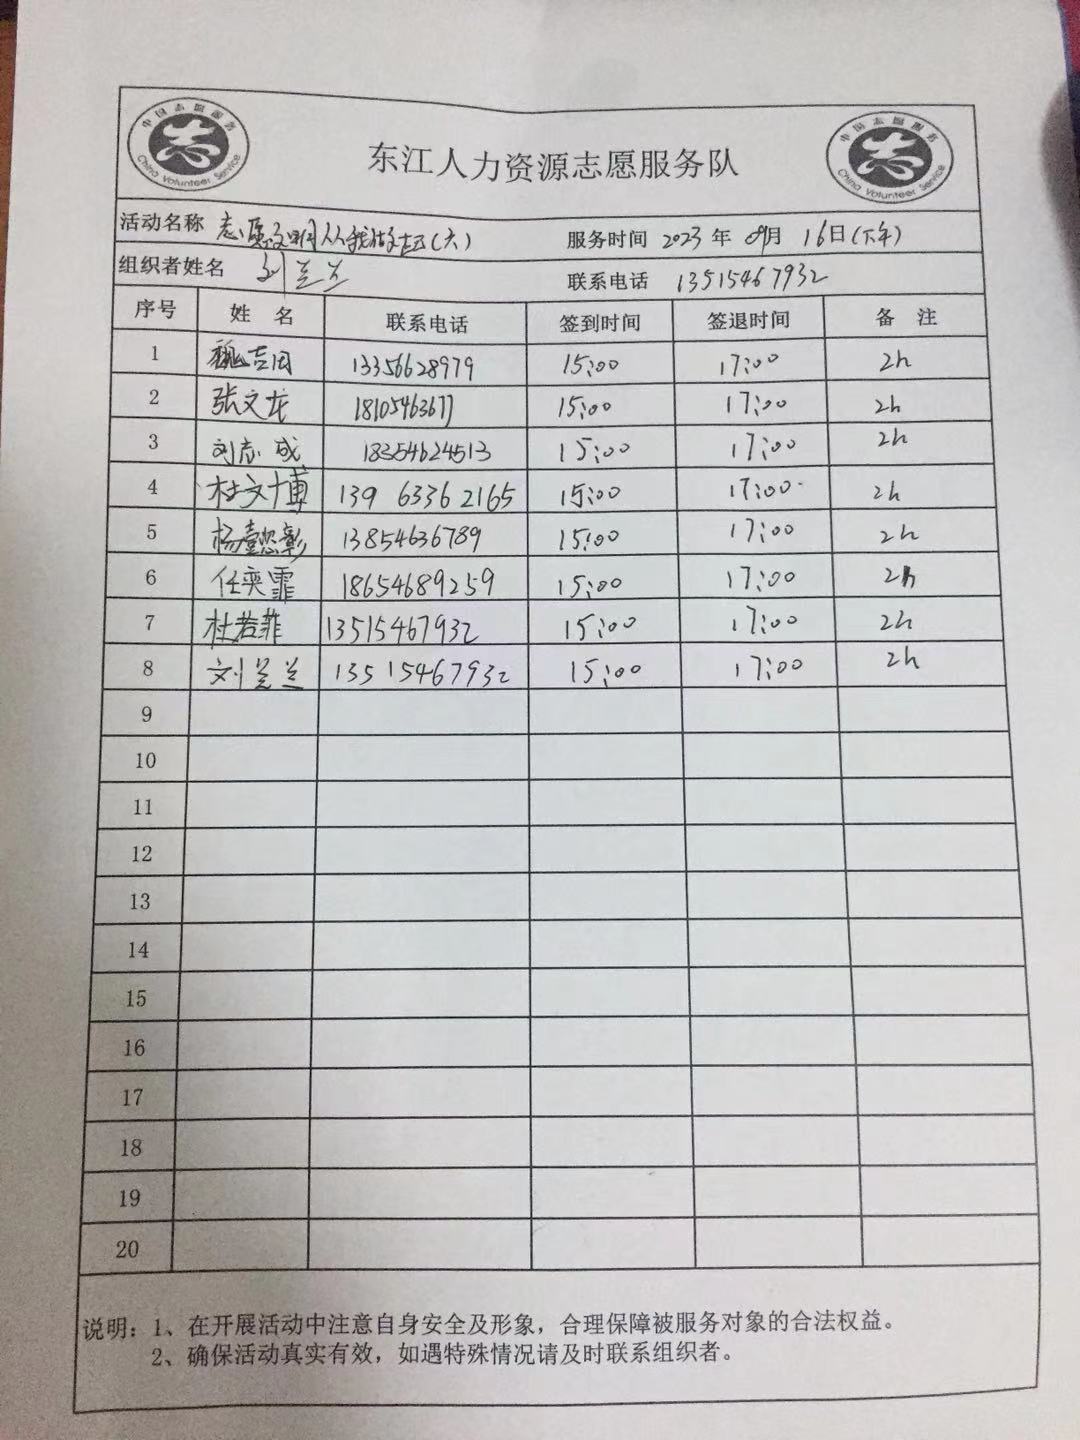 中国志愿服务
China Volunteer Service
东江人力资源志愿服务队
中国志愿服务
China Volunteer Service
活动名称 志愿文明 从我做起 (六) 服务时间 2023年 09月 16日(下午)
组织者姓名 刘兰兰 联系电话 13515467932
序号 姓 名 联系电话 签到时间 签退时间 备 注
1 魏吉闰 13356628979 15:00 17:00 2h
2 张文龙 1810546367 15:00 17:00 2h
3 刘志成 18354624513 15:00 17:00 2h
4 杜文博 139 6336 2165 15:00 17:00 2h
5 杨懿彰 13854636789 15:00 17:00 2h
6 任奕霏 18654689259 15:00 17:00 2h
7 杜若菲 13515467932 15:00 17:00 2h
8 刘兰兰 13515467932 15:00 17:00 2h
9
10
11
12
13
14
15
16
17
18
19
20
说明：1、在开展活动中注意自身安全及形象，合理保障被服务对象的合法权益。
2、确保活动真实有效，如遇特殊情况请及时联系组织者。